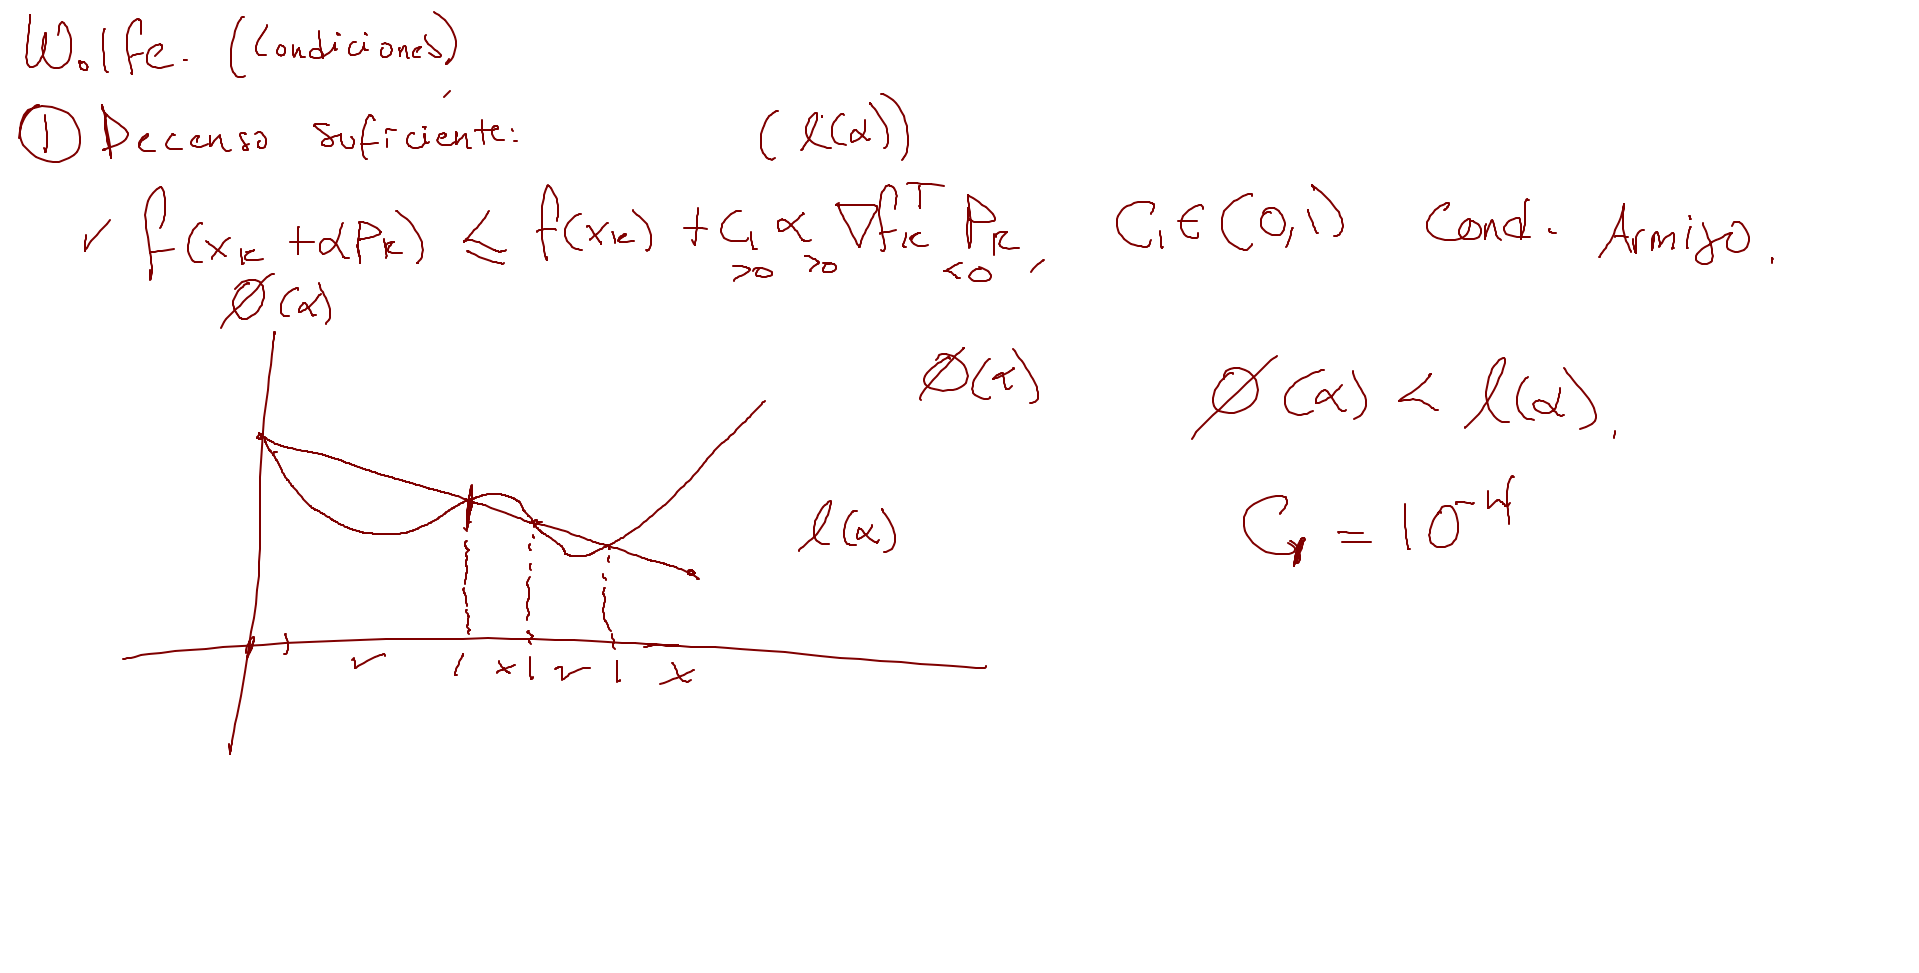 Wolfe. (Condiciones)
① Decenso suficiente: (l(α))
✓ f(xₖ + αPₖ) ≤ f(xₖ) + C₁ α ∇fₖᵀ Pₖ, C₁ ∈ (0,1) Cond. Armijo.
>0 >0 <0
Ø(α)
Ø(α) Ø(α) < l(α).
l(α) C₁ = 10⁻⁴
✓ x ✓ x